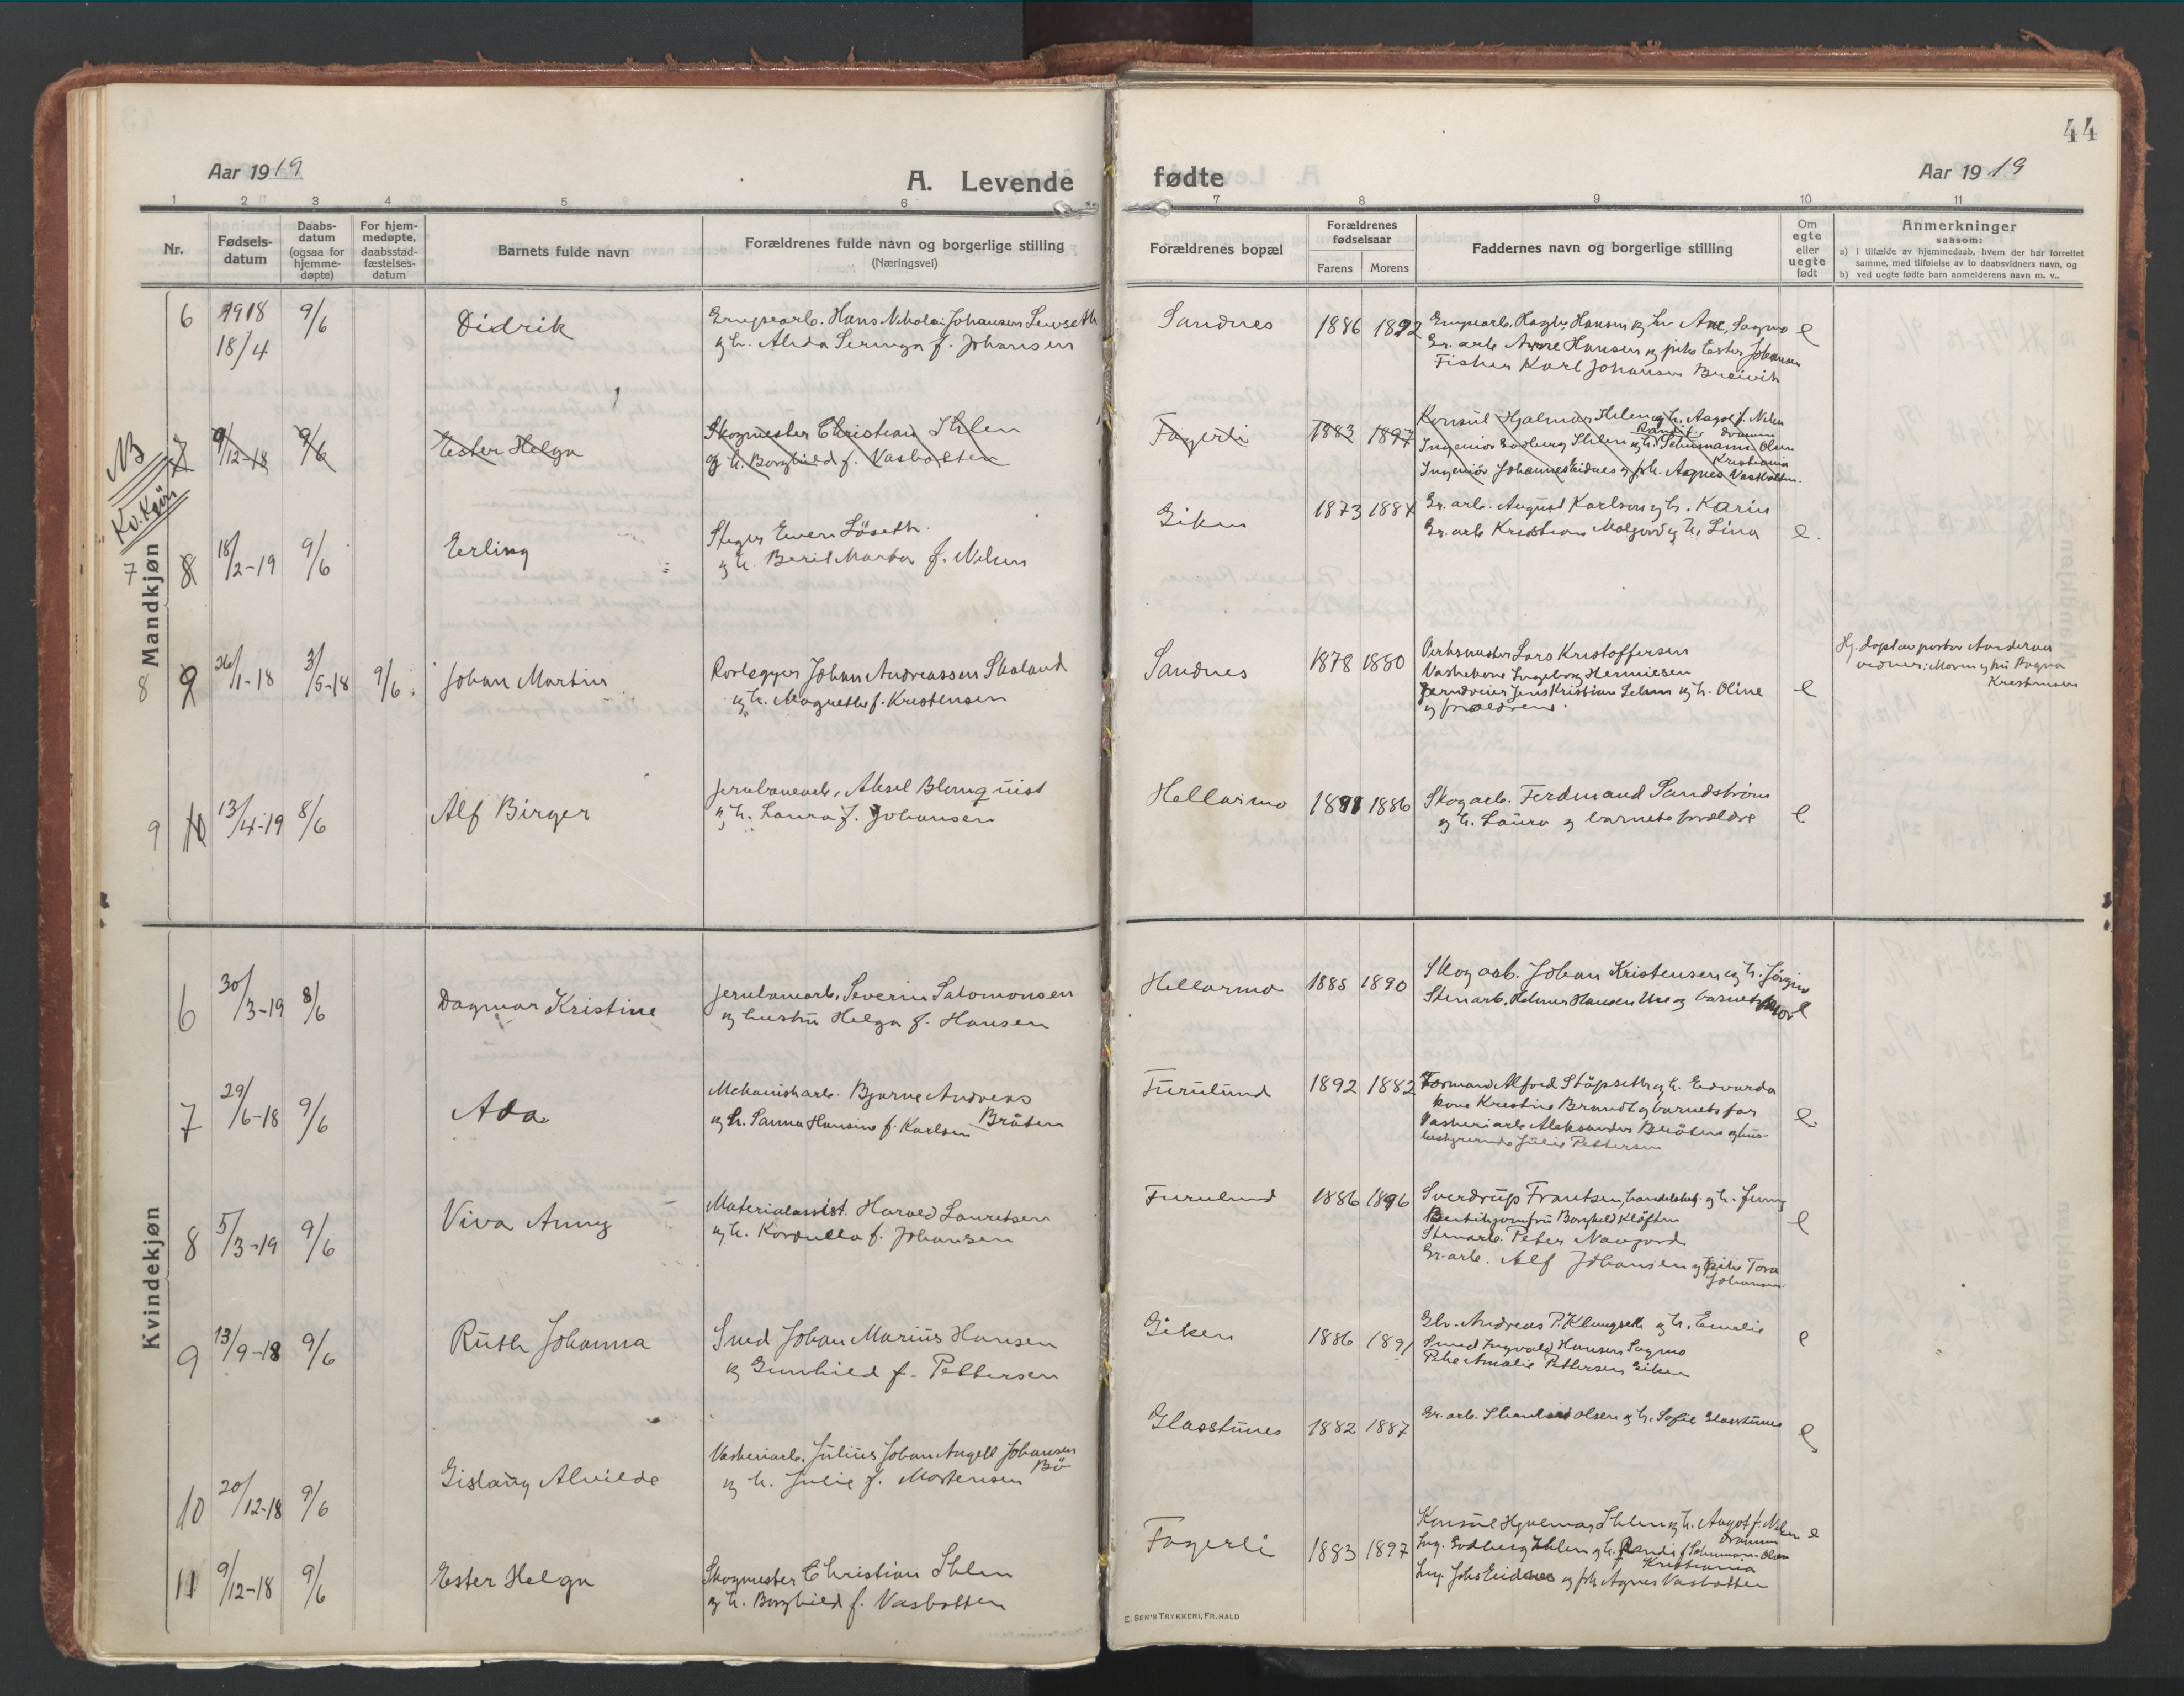 44
Aar 1919
A. Levende
fødte
Aar 1919
1 2 3 4 5 6 7 8 9 10 11
Nr.
Fødsels-
datum
Daabs-
datum
(ogsaa for
hjemme-
døpte)
For hjem-
medøpte,
daabsstad-
fæstelses-
datum
Barnets fulde navn
Forældrenes fulde navn og borgerlige stilling
(Næringsvei)
Forældrenes bopæl
Forældrenes
fødselsaar
Farens Morens
Faddernes navn og borgerlige stilling
Om
egte
eller
uegte
født
Anmerkninger
saasom:
a) i tilfælde av hjemmedaab, hvem der har forrettet
samme, med tilføielse av to daabsvidners navn, og
b) ved uegte fødte barn anmelderens navn m. v.
Mandkjøn
6 1918
18/4 9/6 Didrik
Hans Nikolai Johansen
og h. Alida f. Johansen
Sandnes 1886 1892
Hansen og h. Ane, Sagmo e
Gr. arb. Arne Hansen og pike Ester Johansen
Fisker Karl Johansen Breivik
NB
Kv. Kjön
7 9/12-18 9/6 Ester Helga
Skogmester Christian Ihlen
og h. Borghild f. Vasbotten
Fagerli 1883 1897
Konsul Hjalmar Ihlen og h. Aagot f. Nilsen
Randi f. Drammen
Ingeniör Ihlen og h. Schumann-Olsen
Kristiania
Ingeniör Johannes Eidnes og frk. Agnes Vasbotten
7 8 18/2-19 9/6 Erling
Stiger Löseth
og h. Berit Marta f. Nilsen
Giken 1873 1884
Gr. arb. August Karlson og h. Karin
Gr. arb. Kristian og h. Lina e.
8 9 26/1-18 3/5-18 9/6 Johan Martin
Rörlegger Johan Andreassen Skaland
og h. Magnethe f. Kristensen
Sandnes 1878 1880
Verksmester Lars Kristoffersen
Vaskekone Ingeborg Henniksen
Jens Kristian og h. Oline e
og forældrene.
Hj. døpt av pastor
vidner: Moren og fru Dagna
Kristensen
9 10 13/4-19 8/6 Alf Birger
Jernbanearb. Aksel Blomquist
og h. Laura f. Johansen
Hellarmo 1891 1886
Skogarb. Ferdinand Sandström
og h. Laura og barnets forældre e
Kvindekjøn
6 30/3-19 8/6 Dagmar Kristine
Jernbanearb. Severin Salomonsen
og hustru Helga f. Hansen
Hellarmo 1885 1890
Skogarb. Johan Kristensen og h. Jörgine
Stenarb. Helmer Hansen og barnets mor e
7 29/6-18 9/6 Ada
Mekanisk arb. Bjarne Andreas
Bråten
og h. Sanna Hansine f. Karlsen
Furulund 1892 1882
Formand Alfred Stöpseth og h. Edvarda
kone Kristine Brandt og barnets far
Vaskeriarb. Aleksander Bråten og hus- e.
bestyrerinde Julie Pettersen
8 5/3-19 9/6 Viva Anny
Materialassist. Harald Lauritsen
og h. Kordulla f. Johansen
Furulund 1886 1896
Sverdrup Frantsen, handelsbetj. og h. Jenny
Butikjomfru Borghild Klöften e
Stenarb. Peter Navjord
Gr. arb. Alf Johansen og pike Tora
Johansen
9 13/9-18 9/6 Ruth Johanna
Smed Johan Marius Hansen
og Gunhild f. Pettersen
Giken 1886 1891
Andreas P. Klungseth og h. Emelie e
Smed Ingvald Hansen Sagmo
Pike Amalie Pettersen Giken
10 20/12-18 9/6 Gislaug Alvilde
Vaskeriarb. Julius Johan Angell Johansen
Bö
og h. Julie f. Mortensen
Glasstunes 1882 1887
Gr. arb. Olsen og h. Sofie Glasstunes e
11 9/12-18 9/6 Ester Helga
Skogmester Christian Ihlen
og h. Borghild f. Vasbotten
Fagerli 1883 1897
Konsul Hjalmar Ihlen og h. Aagot f. Nilsen e
Drammen
Ing. Ihlen og h. Randi f. Schumann-Olsen
Kristiania
Ing. Johs Eidnes og frk Agnes Vasbotten
E. SEM'S TRYKKERI, FR.HALD